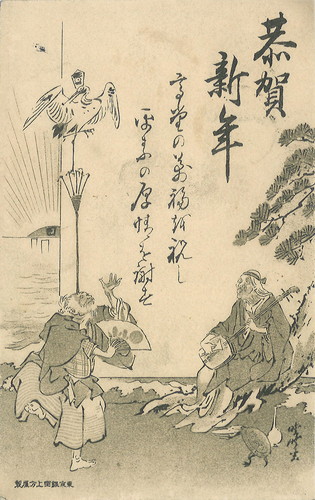 恭賀
新年
高堂の萬福を祝し
平素の厚情を謝す
東京銀座上方屋製